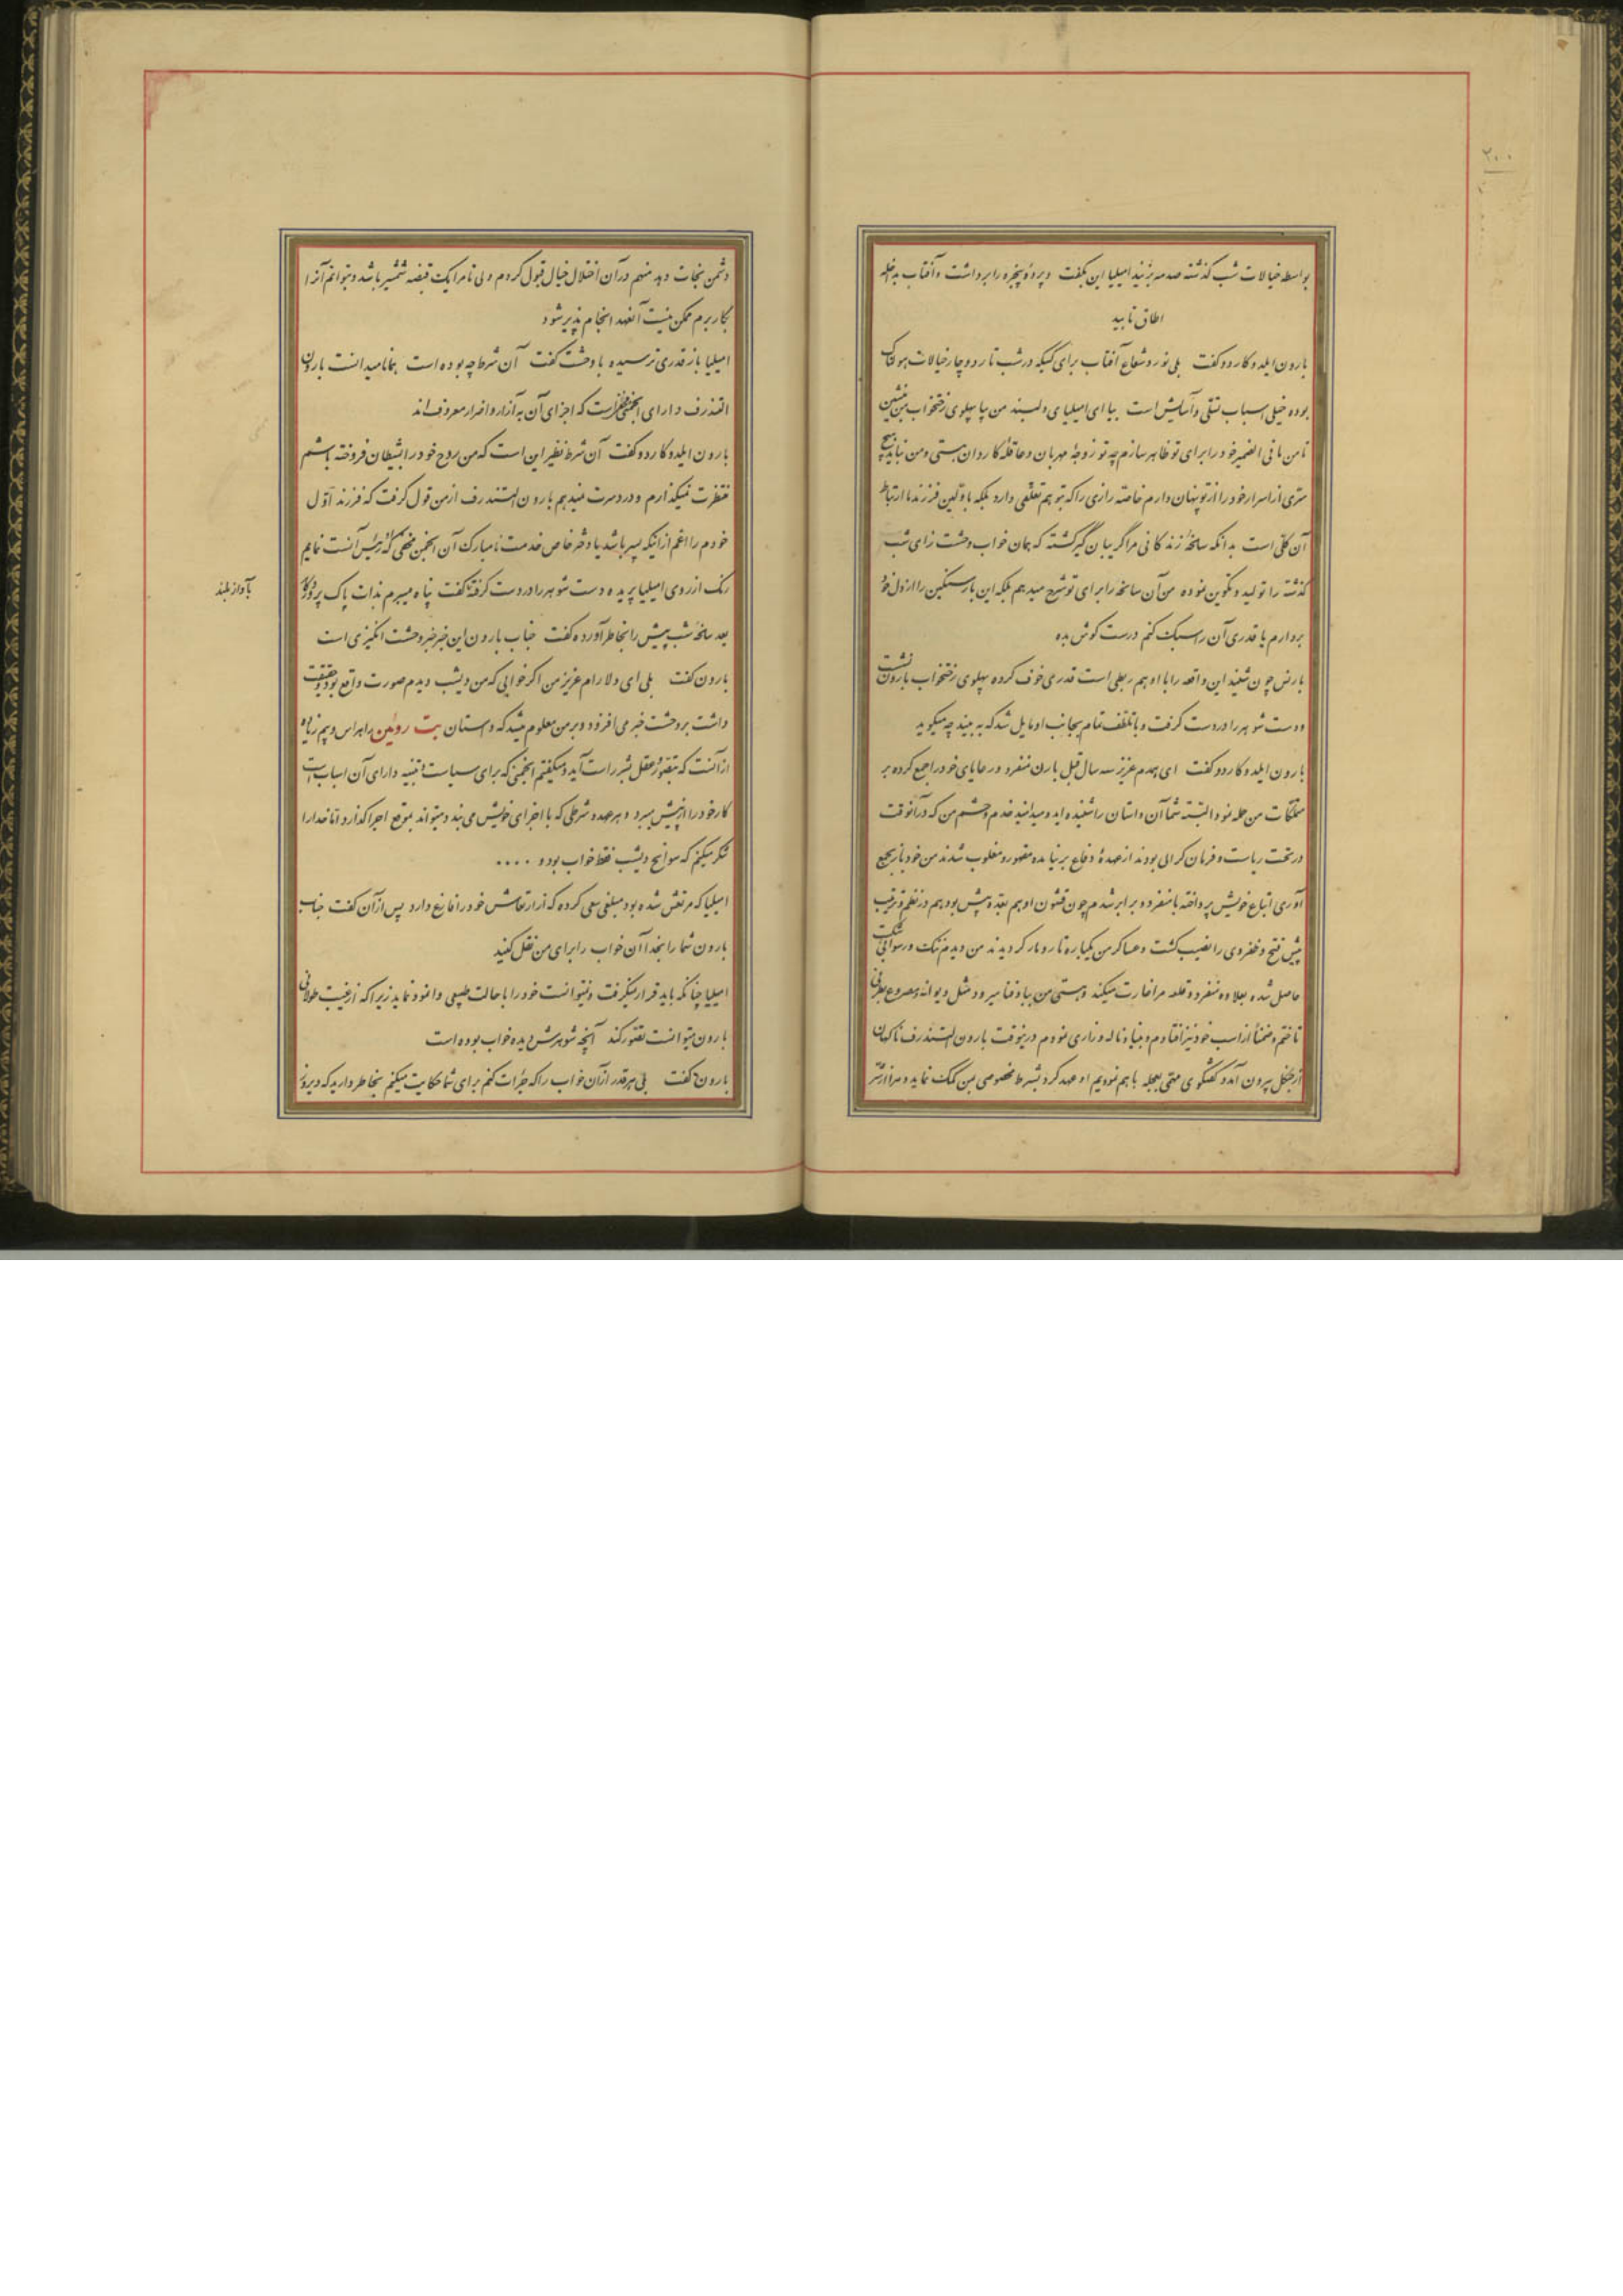 ۲۰۰
بواسطه خیالات شب گذشته صدمه بزنید امیلیا این بگفت و پردهٔ پنجره را برداشت و آفتاب بداخله
اطاق تابید
بارون ایلدوکاردو گفت بلی نور و شعاع آفتاب برای کسیکه در شب تار دوچار خیالات هولناک
بوده خیلی اسباب تسلی و آسایش است بیا ای امیلیای دلبند من بیا پهلوی رختخواب من بنشین
تا من مافی الضمیر خود را برای تو ظاهر سازم چه تو زوجهٔ مهربان و عاقلهٔ کاردان هستی و من نباید هیچ
سری از اسرار خود را از تو پنهان دارم خاصه رازی را که بتو هم تعلقی دارد بلکه با اولین فرزند ما ارتباط
آن کلی است بدانکه سانحهٔ زندگانی مرا گریبان گیر گشته که همان خواب وحشت زای شب
گذشته را تولید و تکوین نموده من آن سانحه را برای تو شرح میدهم بلکه این بار سنگین را از دل خود
بردارم یا قدری آن را سبک کنم درست گوش بده
بارنس چون شنید این واقعه را با او هم ربطی است قدری خوف کرده پهلوی رختخواب بارون نشست
و دست شوهر را در دست گرفت و با تلطف تمام بجانب او مایل شد که به بیند چه میگوید
بارون ایلدوکاردو گفت ای همدم عزیز سه سال قبل بارن منفرد و رعایای خود را جمع کرده بر
متملکات من حمله نمود البته شما آن داستان را شنیده اید و میدانید خدم و حشم من که در آنوقت
در تحت ریاست و فرمان کرالی بودند از عهدهٔ دفاع بر نیامده مقهور و مغلوب شدند من خود باز بجمع
آوری اتباع خویش پرداخته با منفرد و برابر شدم چون قشون او هم بعده بیش بود و هم در نظم و ترتیب
پیش فتح و ظفر وی را نصیب گشت و عساکر من یکباره تار و مار گردیدند من دیدم ننگ و رسوائی شکست
حاصل شده بعلاوه منفرد و قلعه مرا غارت میکند و هستی من بباد فنا میرود مثل دیوانه و مصروع بطرفی
تاختم و ضمناً از اسب خود نیز افتادم و بنیاد ناله و زاری نمودم درینوقت بارون التندرف ناگهان
از جنگل بیرون آمد و گفتگوی متمی بعجله با هم نمودیم او عهد کرد بشرط مخصوصی بمن کمک نماید و مرا از شر
دشمن نجات دهد منهم در آن اختلال خیال قبول کردم ولی تا مرا یک قبضه شمشیر باشد و بتوانم آنرا
بکار برم ممکن نیست آنعهد انجام پذیر شود
امیلیا باز قدری ترسیده با وحشت گفت آن شرط چه بوده است همانا میدانست بارون
التندرف دارای انجمنی است که اجزای آن به آزار و اضرار معروف اند
بارون ایلدوکاردو گفت آن شرط نظیر این است که من روح خود را بشیطان فروخته باشم
منتظرت نمیگذارم و دردسرت نمیدهم بارون التندرف از من قول گرفت که فرزند اول
خودم را اعم از اینکه پسر باشد یا دختر خاص خدمت نامبارک آن انجمن مخفی که رئیس آنست نمایم
رنگ از روی امیلیا پریده دست شوهر را در دست گرفته گفت پناه میبرم بذات پاک پروردگار
بآواز بلند
بعد سانحه شب پیش را بخاطر آورده گفت جناب بارون این خبر خبر وحشت انگیزی است
بارون گفت بلی ای دلارام عزیز من اگر خوابی که من دیشب دیدم صورت واقع بود و حقیقت
داشت بر وحشت خبر می افزود و بر من معلوم میشد که داستان بت روئین را هراس و بیم زیاده
از آنست که بتصور عقل بشر راست آید و میگفتم انجمنی که برای سیاست و تنبیه دارای آن اسباب است
کار خود را از پیش میبرد و هر عهد و شرطی که با اجزای خویش می بندد میتواند بموقع اجرا گذارد اما خدا را
شکر میکنم که سوانح دیشب فقط خواب بود و ....
امیلیا که مرتعش شده بود مبلغی سعی کرده که از ارتعاش خود را مانع دارد پس از آن گفت جناب
بارون شما را بخدا آن خواب را برای من نقل کنید
امیلیا چنانکه باید قرار میگرفت و نتوانست خود را با حالت طبیعی وانمود نماید زیرا که از غیبت طولانی
بارون میتوانست تصور کند آنچه شوهرش دیده خواب بوده است
بارون گفت بلی هر قدر از آن خواب را که جرأت کنم برای شما حکایت میکنم بخاطر دارید که دیروز